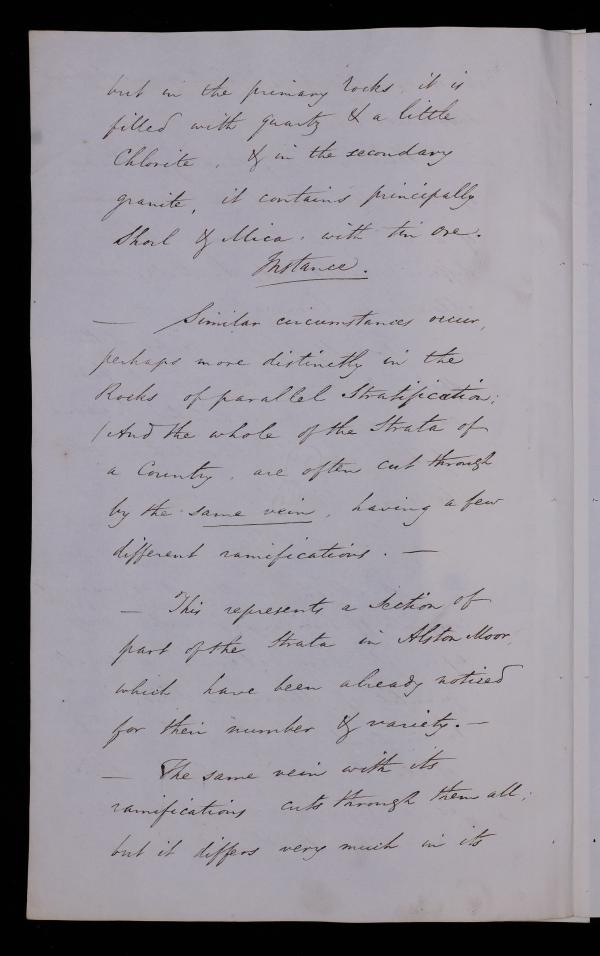 but in the primary rocks, it is
filled with quartz & a little
Chlorite, & in the secondary
granite, it contains principally
Shorl & Mica, with tin ore.
Instance.
— Similar circumstances occur,
perhaps more distinctly in the
Rocks of parallel Stratification;
(And the whole of the Strata of
a Country, are often cut through
by the same vein, having a few
different ramifications. —
— This represents a Section of
part of the Strata in Alston Moor,
which have been already noticed
for their number & variety. —
— The same vein with its
ramifications cuts through them all;
but it differs very much in its